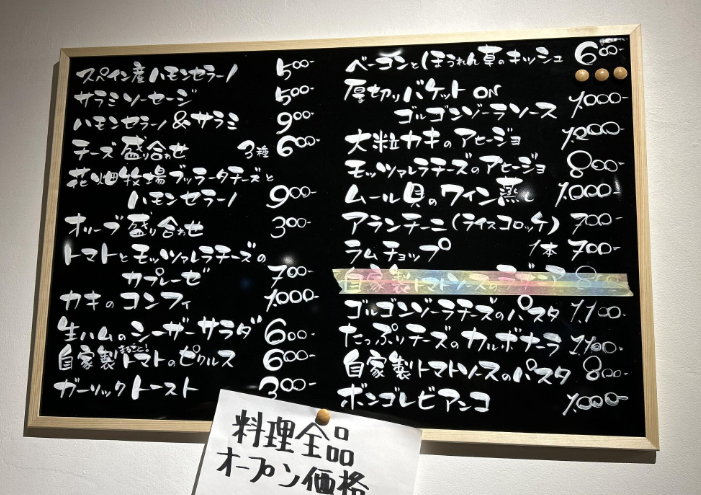 スペイン産ハモンセラーノ 500-
サラミソーセージ 500-
ハモンセラーノ&サラミ 900-
チーズ盛り合わせ 3種 600-
花畑牧場ブッラータチーズと
ハモンセラーノ 900-
オリーブ盛り合わせ 300-
トマトとモッツァレラチーズの
カプレーゼ 700-
カキのコンフィ 1000-
生ハムのシーザーサラダ 600-
自家製まるごと!トマトのピクルス 600-
ガーリックトースト 300-
ベーコンとほうれん草のキッシュ 600-
厚切りバケットON
ゴルゴンゾーラソース 1,000-
大粒カキのアヒージョ 1,200-
モッツァレラチーズのアヒージョ 800-
ムール貝のワイン蒸し 1,000-
アランチーニ(ライスコロッケ) 700-
ラムチョップ 1本 700-
自家製トマトソースの
ゴルゴンゾーラチーズのパスタ 1,100-
たっぷりチーズのカルボナーラ
自家製トマトソースのパスタ 800-
ボンゴレビアンコ 1,000-
料理全品
オープン価格